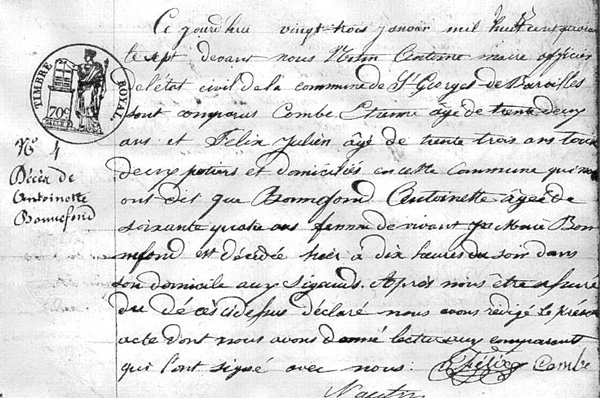 TIMBRE ROYAL
70c
No 4
Décès de
Antoinette
Bonnefond
Ce jourd'hui vingt trois janvier mil huit cent quarante
sept devant nous Antoine maire officier
de l'état civil de la commune de St Georges de
sont comparus Combe Etienne âgé de trente deux
ans et Félix Julien âgé de trente trois ans tous
deux potiers et domiciliés en cette Commune qui nous
ont dit que Bonnefond Antoinette âgée de
soixante quatre ans femme de vivant Bon
nefond est décédée hier à dix heures du soir dans
son domicile aux Sigauds. Après nous être assuré
du décès cidessus déclaré nous avons rédigé le présent
acte dont nous avons donné lecture aux comparant
qui l'ont signé avec nous: félix Combe